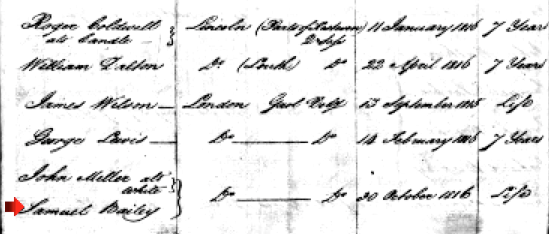 Roger Coldwell } Lincoln (Parts of Kesteven) 11 January 1816 7 Years
als Candle – 2r Sess
William Dalton Do (Louth) Do 22 April 1816 7 Years
James Wilson – London Gaol Dely 13 September 1815 Life
George Davis – Do – Do 14 February 1816 7 Years
John Miller als
White } Do – Do 30 October 1816 Life
Samuel Bailey